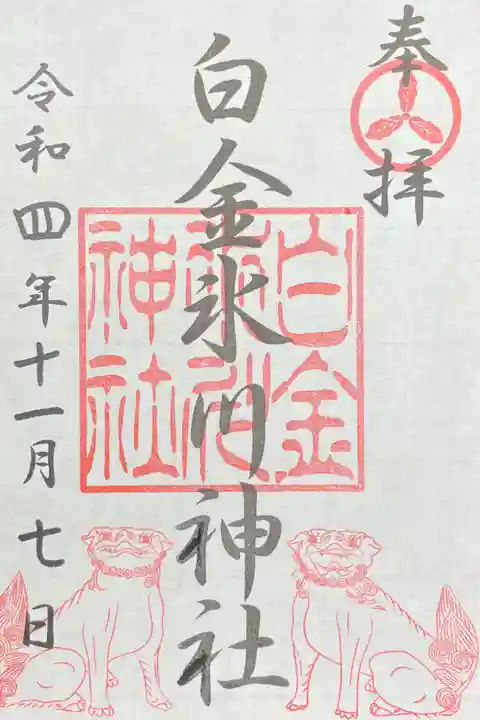 奉拝
白金氷川神社
白金
神社
令和四年十一月七日